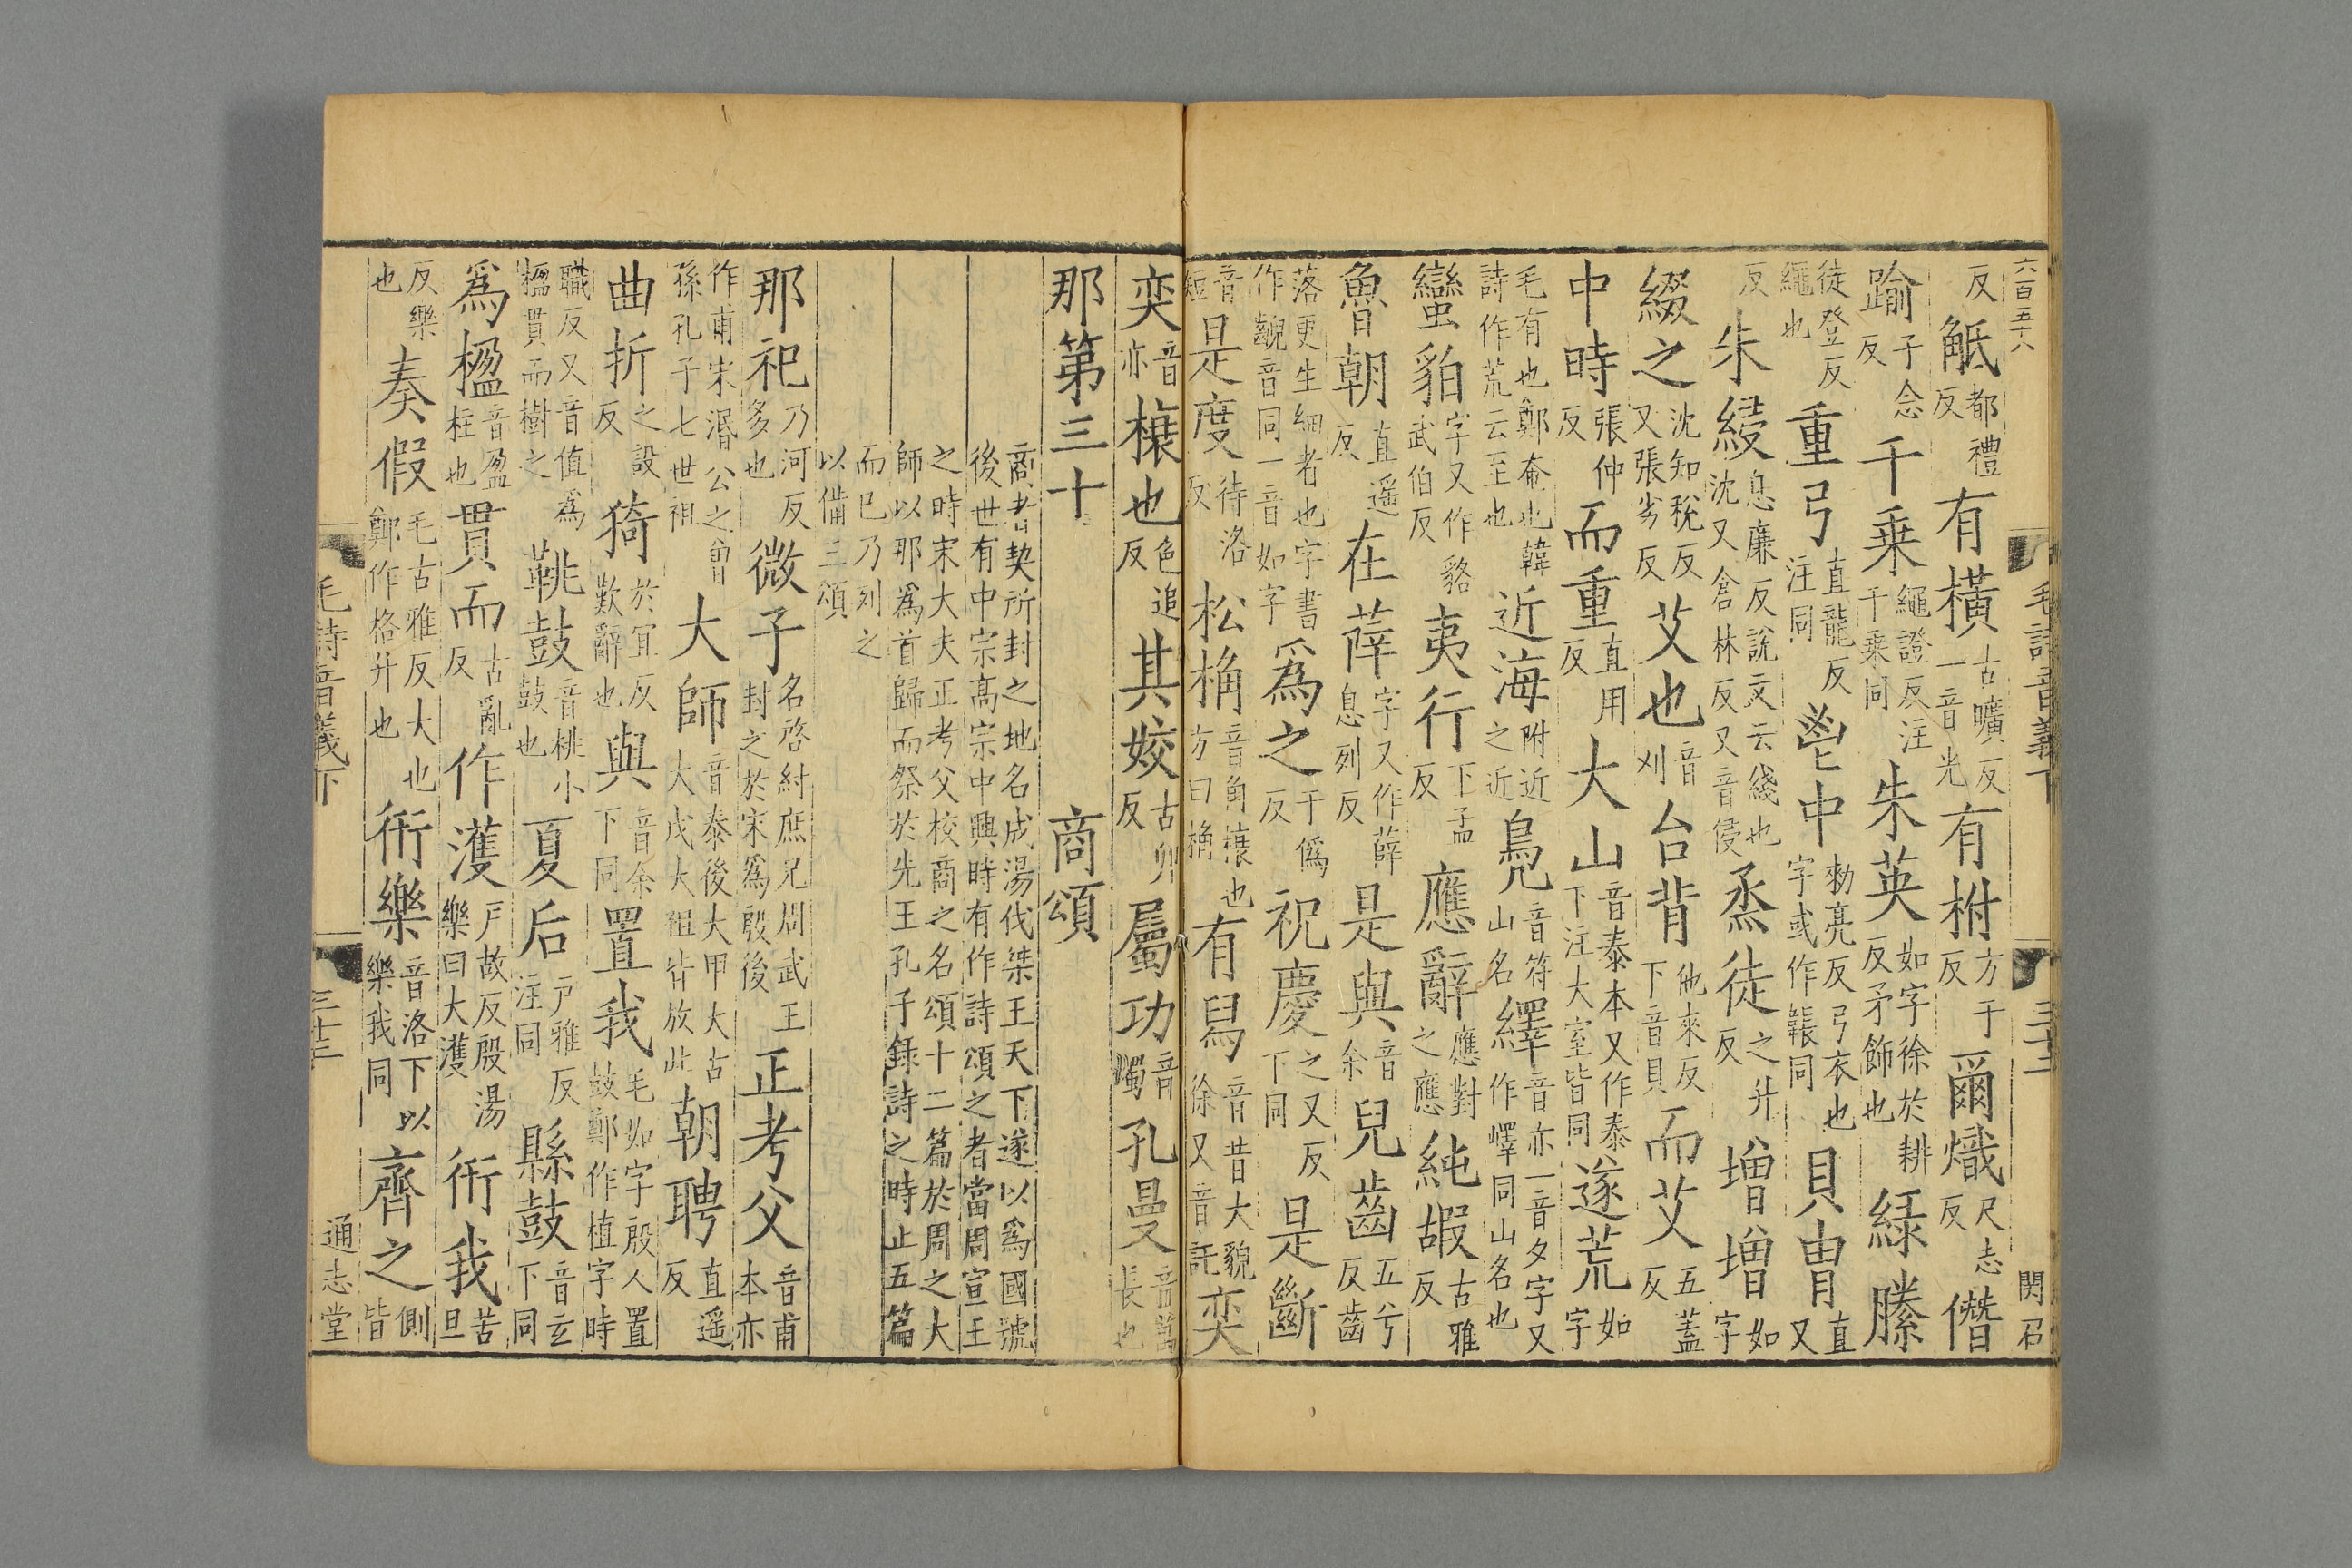 六百五十八
毛詩音義下
三十二
関召
反觝都禮反有橫古曠反一音光有柎方于反爾熾尺志反僭
踰子念反千乗繩證反注千乗同朱英如字徐於耕反矛飾也緑縢
徒登反繩也重弓直龍反注同鬯中勑亮反弓衣也字或作韔同貝冑直又
反朱綅息廉反說文云綫也沈又倉林反又音侵烝徒之升反增增如字
綴之沈知稅反又張劣反艾也音刈台背他來反下音貝而艾五蓋反
中時張仲反而重直用反大山音泰本又作泰下注大室皆同遂荒如字
毛有也鄭奄也韓詩作荒云至也近海附近之近鳧音符山名繹音亦一音夕字又作嶧同山名也
蠻貊字又作貉武伯反夷行下孟反應辭應對之應純嘏古雅反
魯朝直遥反在薛字又作薛息列反是與音余兒齒五兮反齒
落更生細者也字書作齯音同一音如字爲之于僞反祝慶之又反下同是斷
音短是度待洛反松桷音角榱也方曰桷有舄音昔大貌徐又音託奕
奕音亦榱也色追反其姣古卯反屬功音蠋孔曼音萬長也
那第三十　商頌
商者契所封之地名成湯伐桀王天下遂以爲國號後世有中宗高宗中興時有作詩頌之者當周宣王
之時宋大夫正考父校商之名頌十二篇於周之大師以那爲首歸而祭於先王孔子録詩之時止五篇
而已乃列之以備三頌
那祀乃河反多也微子名啓紂庶兄周武王封之於宋爲殷後正考父音甫本亦
作甫宋湣公之曾孫孔子七世祖大師音泰後大甲大古大戊大祖皆放此朝聘直遥反
曲折之設反猗於宜反歎辭也與音余下同置我毛如字殷人置鼓鄭作植字時
職反又音值爲楹貫而樹之鞉鼓音桃小鼓也夏后戸雅反注同縣鼓音玄下同
爲楹音盈柱也貫而古亂反作濩戸故反殷湯樂曰大濩衎我苦旦
反樂也奏假毛古雅反大也鄭作格升也衎樂音洛下以樂我同齊之側皆
毛詩音義下
三十三
通志堂